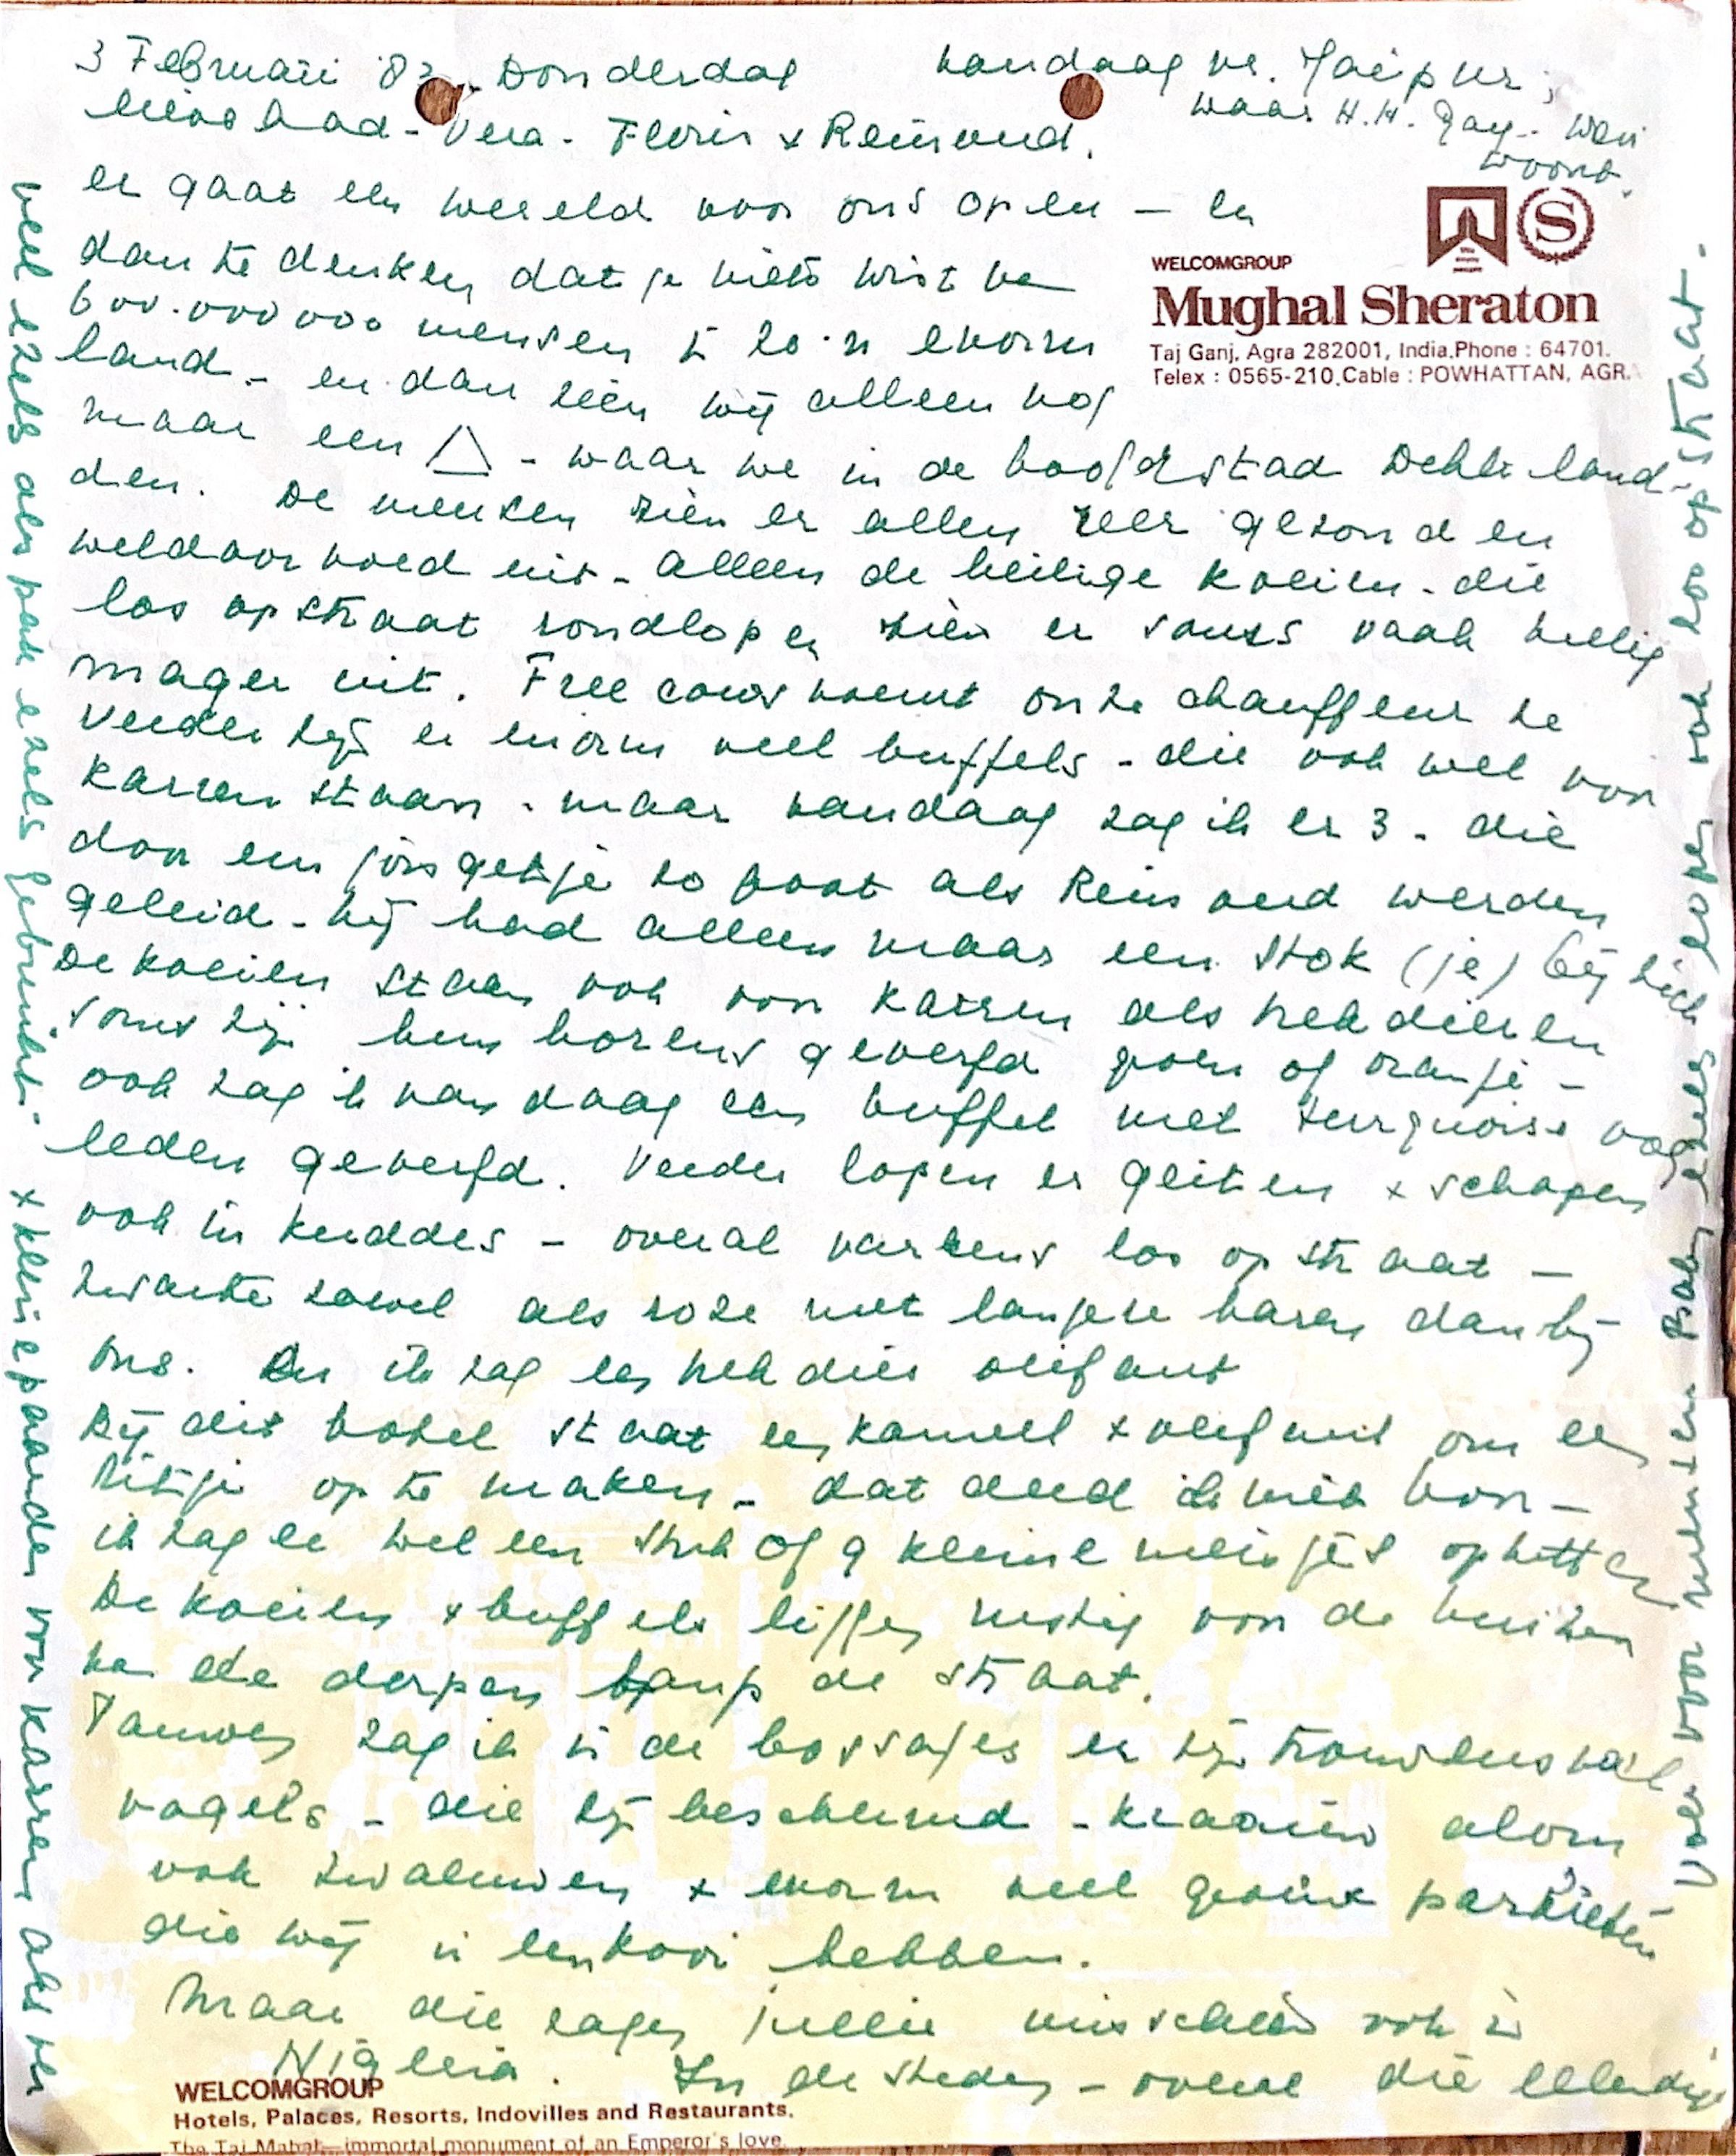 3 Februari '83 - Donderdag
vandaag nr. Jaipur;
waar H.H. Gay..
woont.
lieve Aad - Vera - Floris + Reinoud.
er gaat een wereld voor ons open - en
dan te denken dat je niets wist van
600.000000 mensen in zo'n enorm
land - en dan zien wij alleen nog
maar een △ - waar we in de hoofdstad Dehli land-
den. De mensen zien er allen zeer gezond en
weldoorvoed uit - alleen de heilige koeien - die
los op straat rondlopen zien er soms vaak
mager uit. Free cows noemt onze chauffeur ze
Verder zijn er enorm veel buffels - die ook wel voor
karren staan - maar vandaag zag ik er 3 - die
door een jongetje zo groot als Reinoud werden
geleid - hij had alleen maar een stok (je) bij zich
De koeien staan ook voor karren als trekdieren
soms zijn hun horens geverfd groen of oranje -
ook zag ik vandaag een buffel met turquoise
leden geverfd. Verder lopen er geiten + schapen
ook in kuddes - overal varkens los op straat -
zwarte zowel als roze met langere haren dan bij
ons. En ik zag een trekdier olifant
Bij dit hotel staat een kameel + olifant om een
ritje op te maken - dat deed ik niet hoor -
ik zag er wel een stuk of 9 kleine meisjes op zitten
De koeien + buffels liggen rustig voor de huizen
van de dorpen langs de straat.
Pauwen zag ik in de bossages er zijn trouwens veel
vogels - die zijn beschermd - kraaien alom
ook zwaluwen + enorm veel groene parkieten
die wij in een kooi hebben.
Maar die zagen jullie misschien ook in
Nigeria. In de steden - overal die ellendige
veel ezels als pak ezels gebruikt - + kleine paarden voor karren als
voor ... Baby ezels lopen ook los op straat.
WELCOMGROUP
Mughal Sheraton
Taj Ganj, Agra 282001, India.Phone : 64701.
Telex : 0565-210,Cable : POWHATTAN, AGRA
WELCOMGROUP
Hotels, Palaces, Resorts, Indovilles and Restaurants.
The Taj Mahal—immortal monument of an Emperor's love.